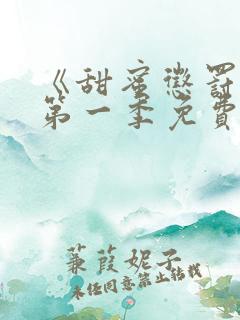 《甜蜜懲罰
第一季免費
蒹葭妮子
未经同意禁止转载